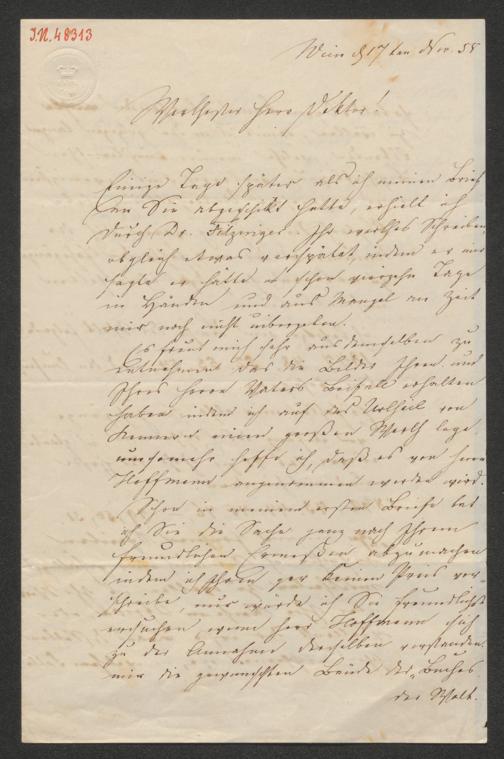 I.N. 48313
Wien d 17ten Nov. 58
Werthester Herr Doktor!
Einige Tage später als ich meinen Brief
an Sie abgeschikt hatte, erhielt ich
durch Dr. Fitzinger Ihr werthes Schreiben
obgleich etwas verspätet indem er mir
sagte er hätte es schon vierzehn Tage
in Händen und aus Mangel an Zeit
mir noch nicht übergeben.
Es freut mich sehr aus demselben zu
entnehmen das die Bilder Ihren und
Ihres Herrn Vaters Beifall erhalten
haben indem ich auf das Urtheil von
Kennern einen großen Werth lege,
umsomehr hoffe ich, daß es von Herrn
Hoffmann angenommen werden wird.
Schon in meinem ersten Briefe bat
ich Sie die Sache ganz nach Ihrem
freundlichen Ermeßen abzumachen
indem ich Ihnen gar keinen Preis vor-
schreibe, nur würde ich Sie freundlichst
ersuchen wenn Herr Hoffmann sich
zu der Annahme derselben verstanden
mir die gewünschten Bände des "Buches
der Welt.